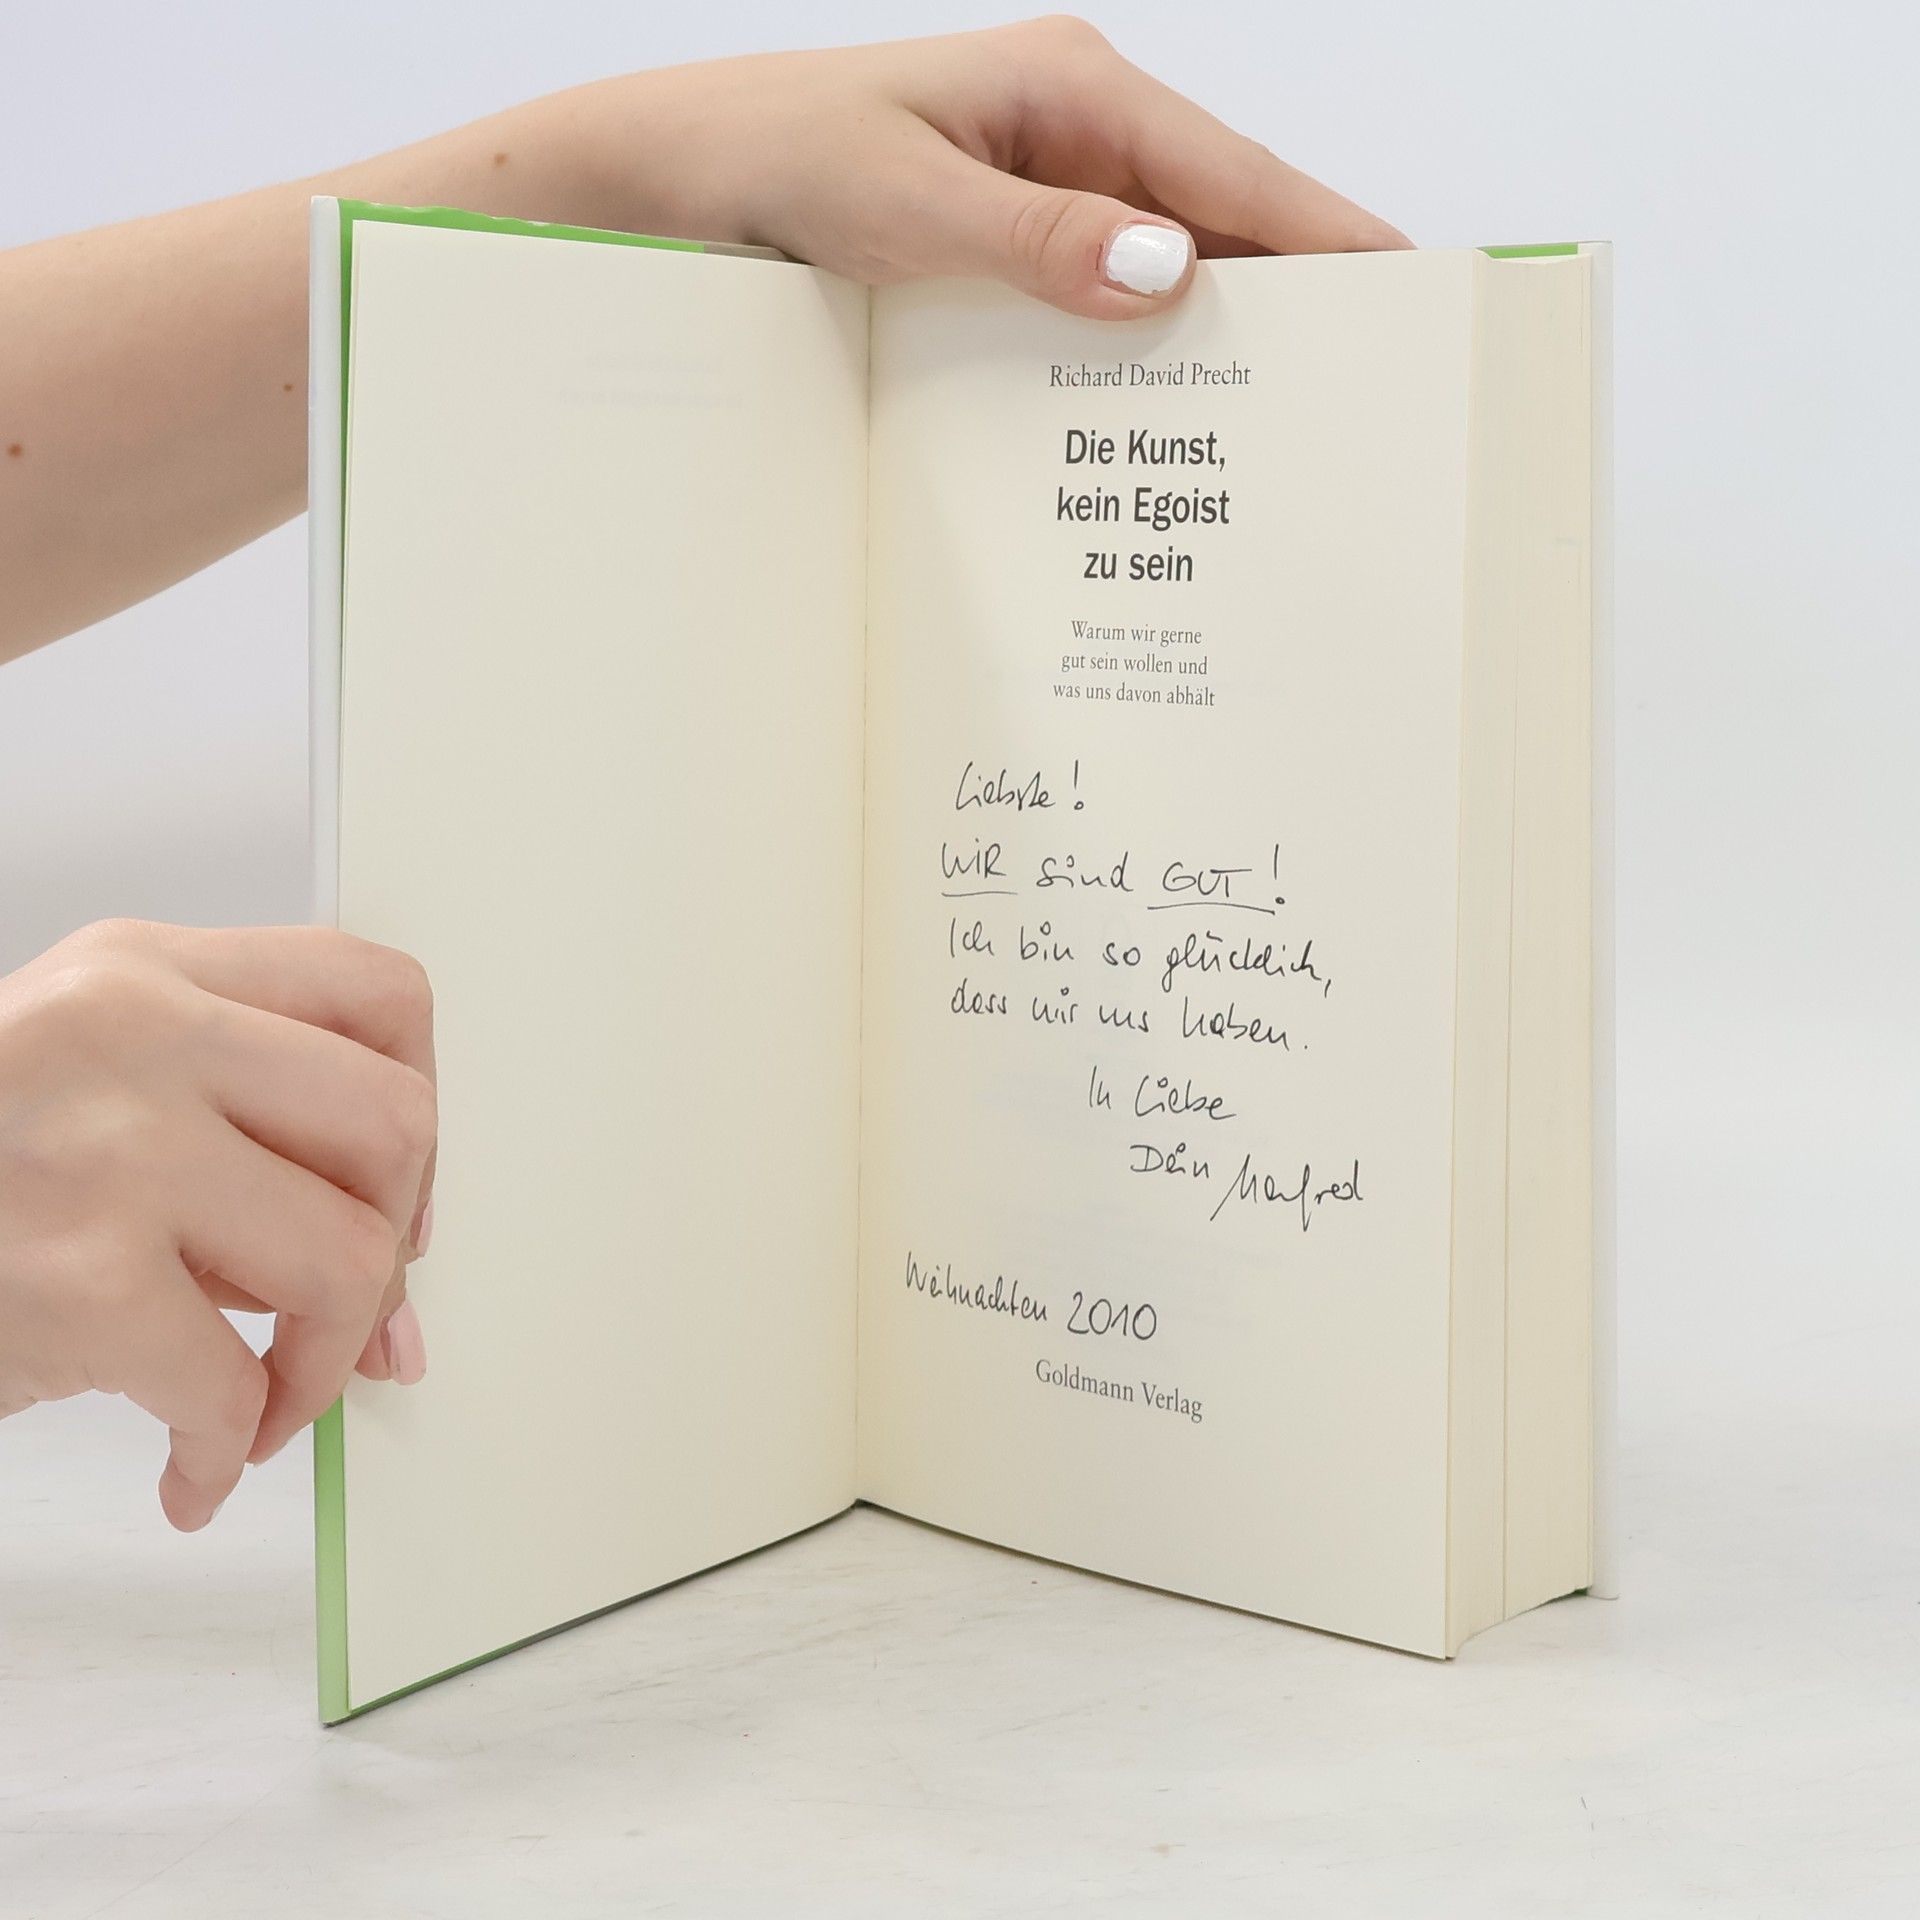 Richard David Precht
Die Kunst,
kein Egoist
zu sein
Warum wir gerne
gut sein wollen und
was uns davon abhält
Liebste!
WIR sind GUT!
Ich bin so glücklich,
dass wir uns haben.
In Liebe
Dein Manfred
Weihnachten 2010
Goldmann Verlag